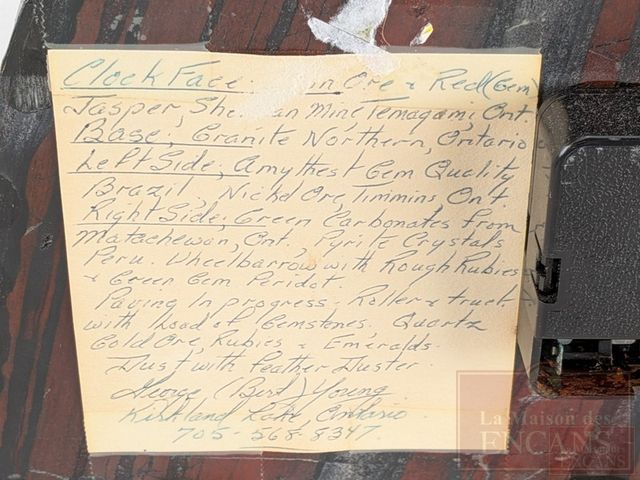 Clock Face: in Ore & Red (Gem)
Jasper, She an Mine, Temagami, Ont
Base: Granite Northern, Ontario
Left Side: Amythest Gem Quality
Brazil, Nickel Ore, Timmins, Ont.
Right Side: Green Carbonates from
Matachewan, Ont., Pyrite Crystals
Peru. Wheelbarrow with Rough Rubies
& Green Gem Peridot.
Paving In progress - Roller & truck
with load of Gemstones. Quartz
Gold Ore, Rubies & Emeralds.
Dust with Feather Duster
George (Bert) Young
Kirkland Lake Ontario
705-568-8347
La Maison des
ENCANS
ENCANS